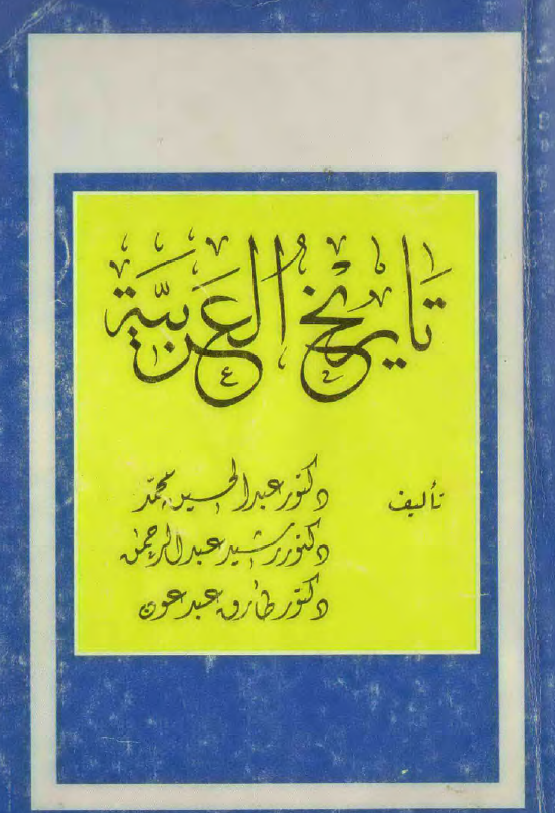 تاريخ العربية
تأليف
دكتور عبد الحسين محمد
دكتور رشيد عبد الرحمن
دكتور طارق عبد عون